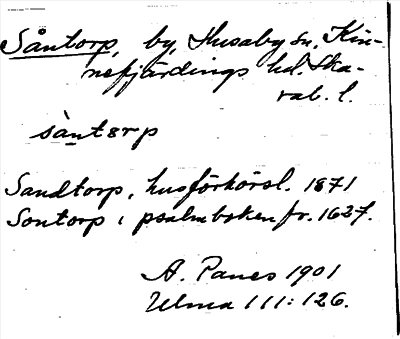 Såntorp, by, Husaby sn, Kin-
nefjärdings hd. Ska-
rab. l.
sàntərp
Sandtorp, husförhörsl. 1871
Sontorp i psalmboken fr. 1627.
A. Panes 1901
Ulma 111:126.